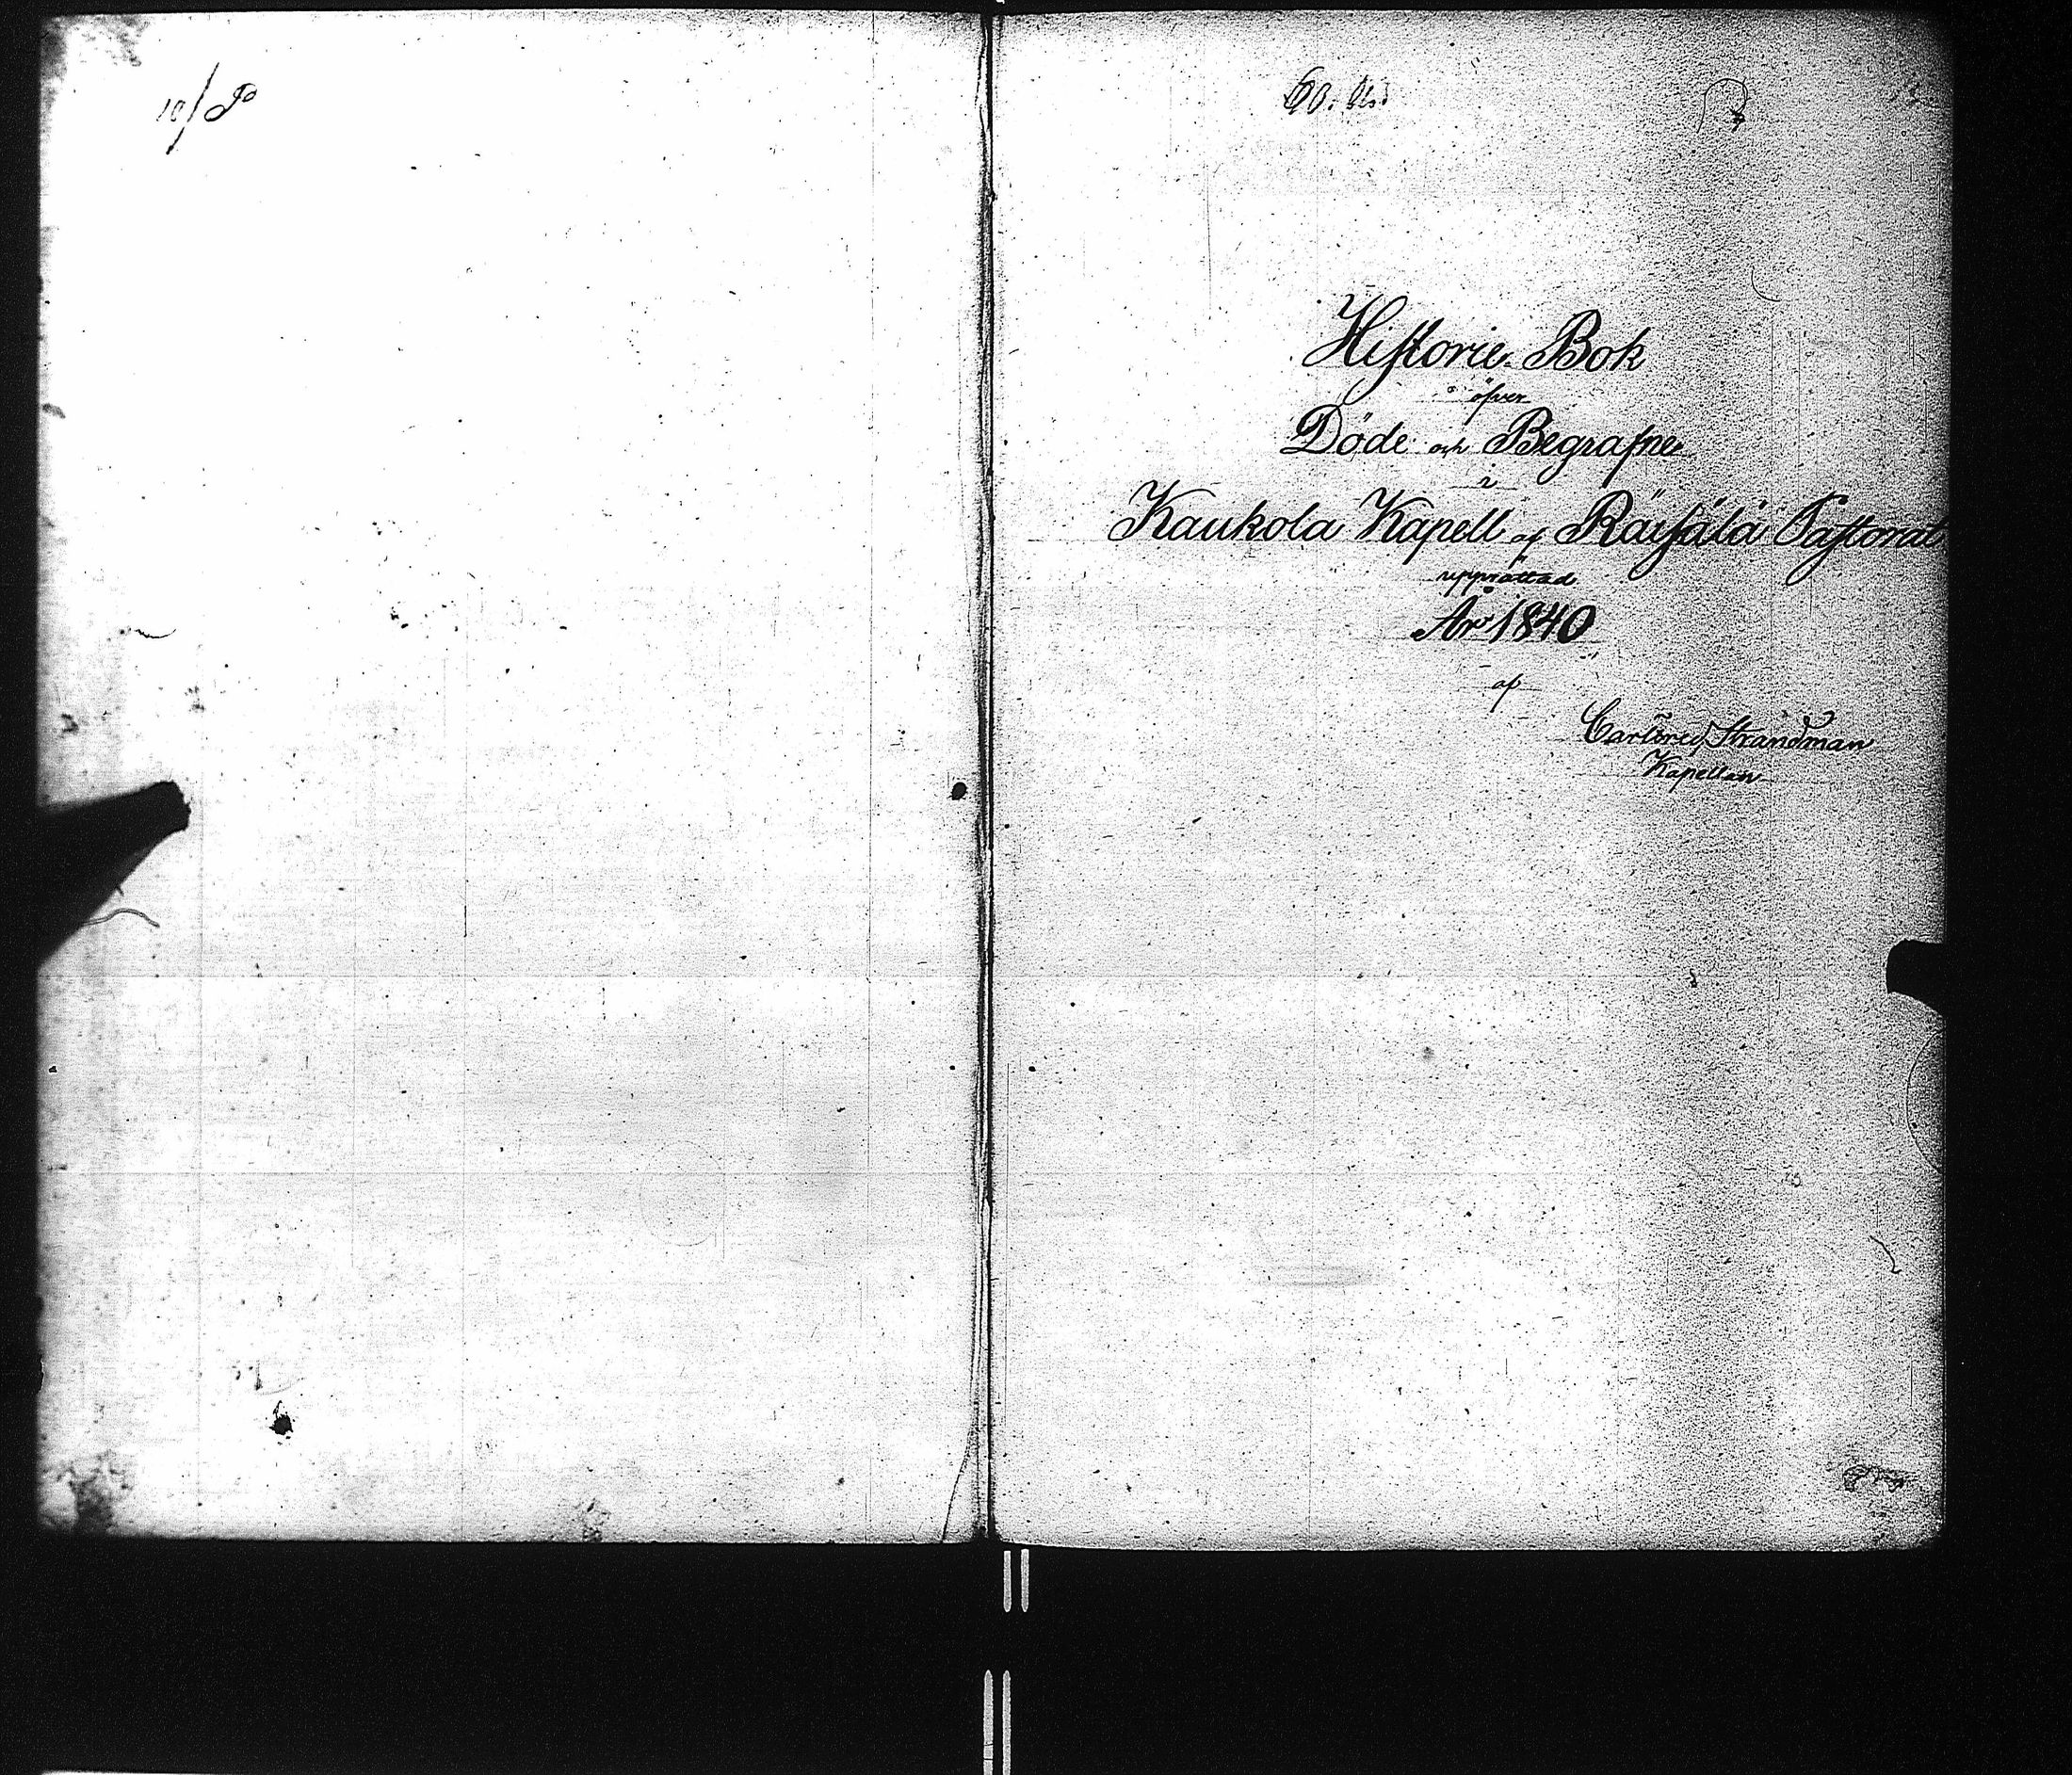 Historie Bok
öfver
Döde och Begrafne
i
Kaukola Kapell af Räisälä Pastorat
upprättad
År 1840
af
Strandman
Kapellan